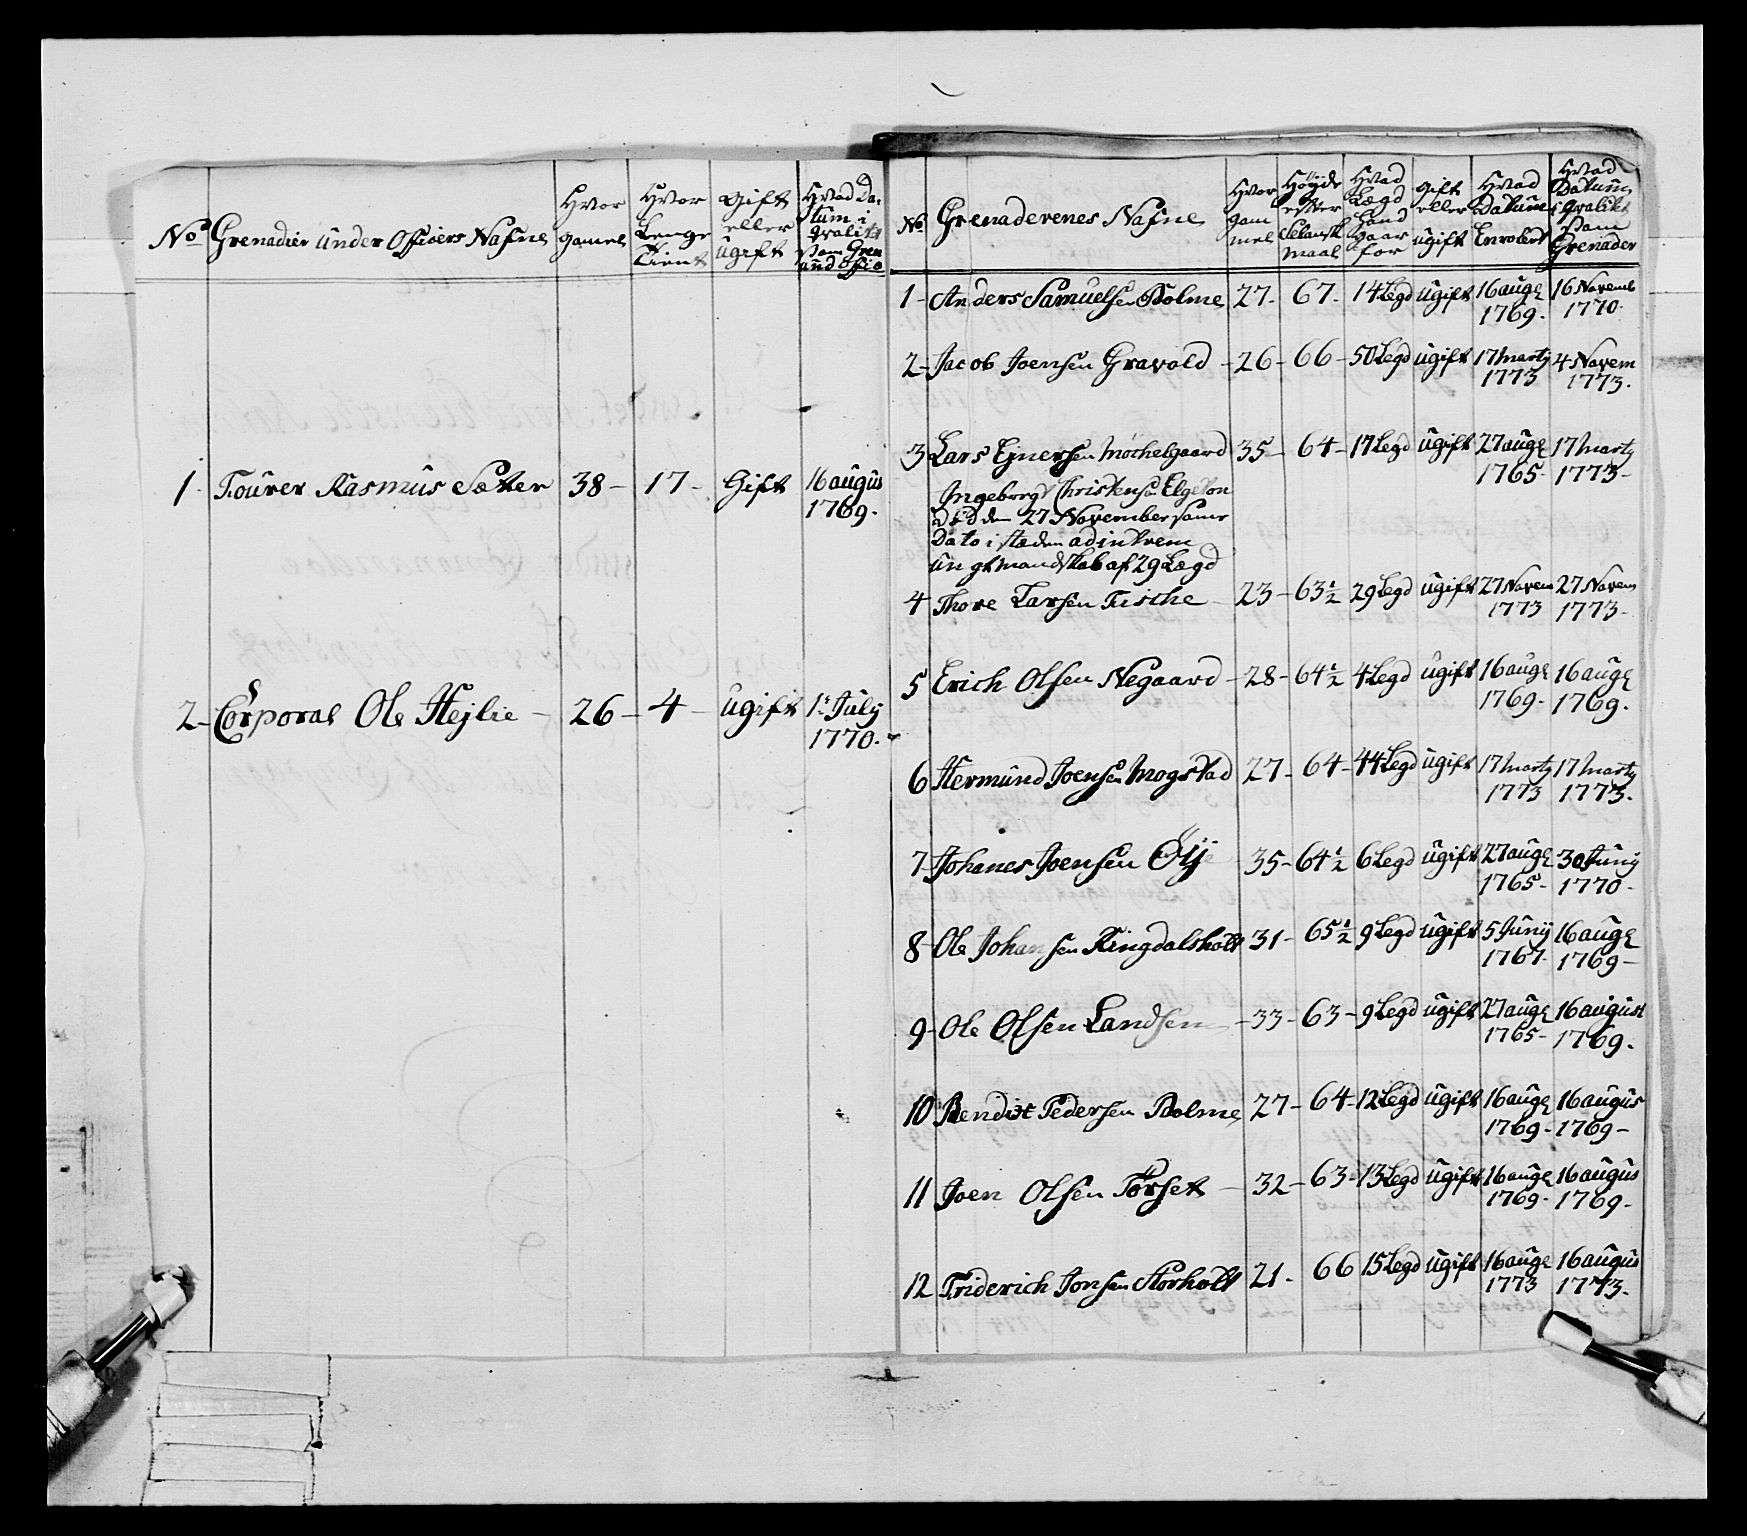 No Grenadier Under Officers Nafne
Hvor gamel
Hvor Lenge Tient
Gift eller ugift
Hvad Datum i qvalitet som Gren und Offic
1 - Tourer Rasmus Sæter 38 - 17 - Gift 16 augus 1769.
2 - Corporal Ole Hejlie - 26 - 4 - ugift 1te July 1770.
No Grenaderenes Nafne
Hvor gammel
Höyde efter Selansk maal
Hvad Lægd Hand Haar for
gift eller ugift
Hvad Datum Enrolert
Hvad Datum i qvalitet som Grenader
1 - Anders Samuelsen Bolme 27 - 67 - 14 Legd ugift 16 aug 1769. 16 Novemb 1770.
2 - Jacob Joensen Gravold - 26 - 66 - 50 Legd ugift 17 marty 1773 4 Novem 1773.
3 Lars Ejnersen Möchelgaard 35 - 64 - 17 Legd ugift 27 aug 1765 - 17 marty 1773 -
Ingeborgt Christens Elgeton
död den 27 November samr
Dato i stæden ad inkrem
ungt mandskab af 29 Lægd
4 Thore Larsen Fische 23 - 63 1/2 29 Legd ugift 27 Novem 1773 27 Novem 1773 -
5 Erich Olsen Negaard - 28 - 64 1/2 4 Legd ugift 16 aug 1769. 16 aug 1769.
6 Hermund Joensen Mogstad 27 - 64 - 44 Legd ugift 17 marty 1773 17 marty 1773.
7 - Johanes Joensen Öye 35 - 64 1/2 6 Legd ugift 27 aug 1765 - 30 Juny 1770 -
8 - Ole Johansen Ringdalsholt 31 - 65 1/2 9 Legd ugift 5 Junij 1767 - 16 aug 1769 -
9 - Ole Olsen Landsem - 33 - 63 - 9 Legd ugift 27 aug 1765 - 16 august 1769.
10 Bendix Pedersen Bolme, 27 - 64 - 12 Legd ugift 16 aug 1769 - 16 augus 1769 -
11 Joen Olsen Törset - 32 - 63 - 13 Legd ugift 16 aug 1769 - 16 augus 1769 -
12 Friderich Jonsen Storholt 21 - 66 15 Legd ugift 16 aug 1773 16 augus 1773.